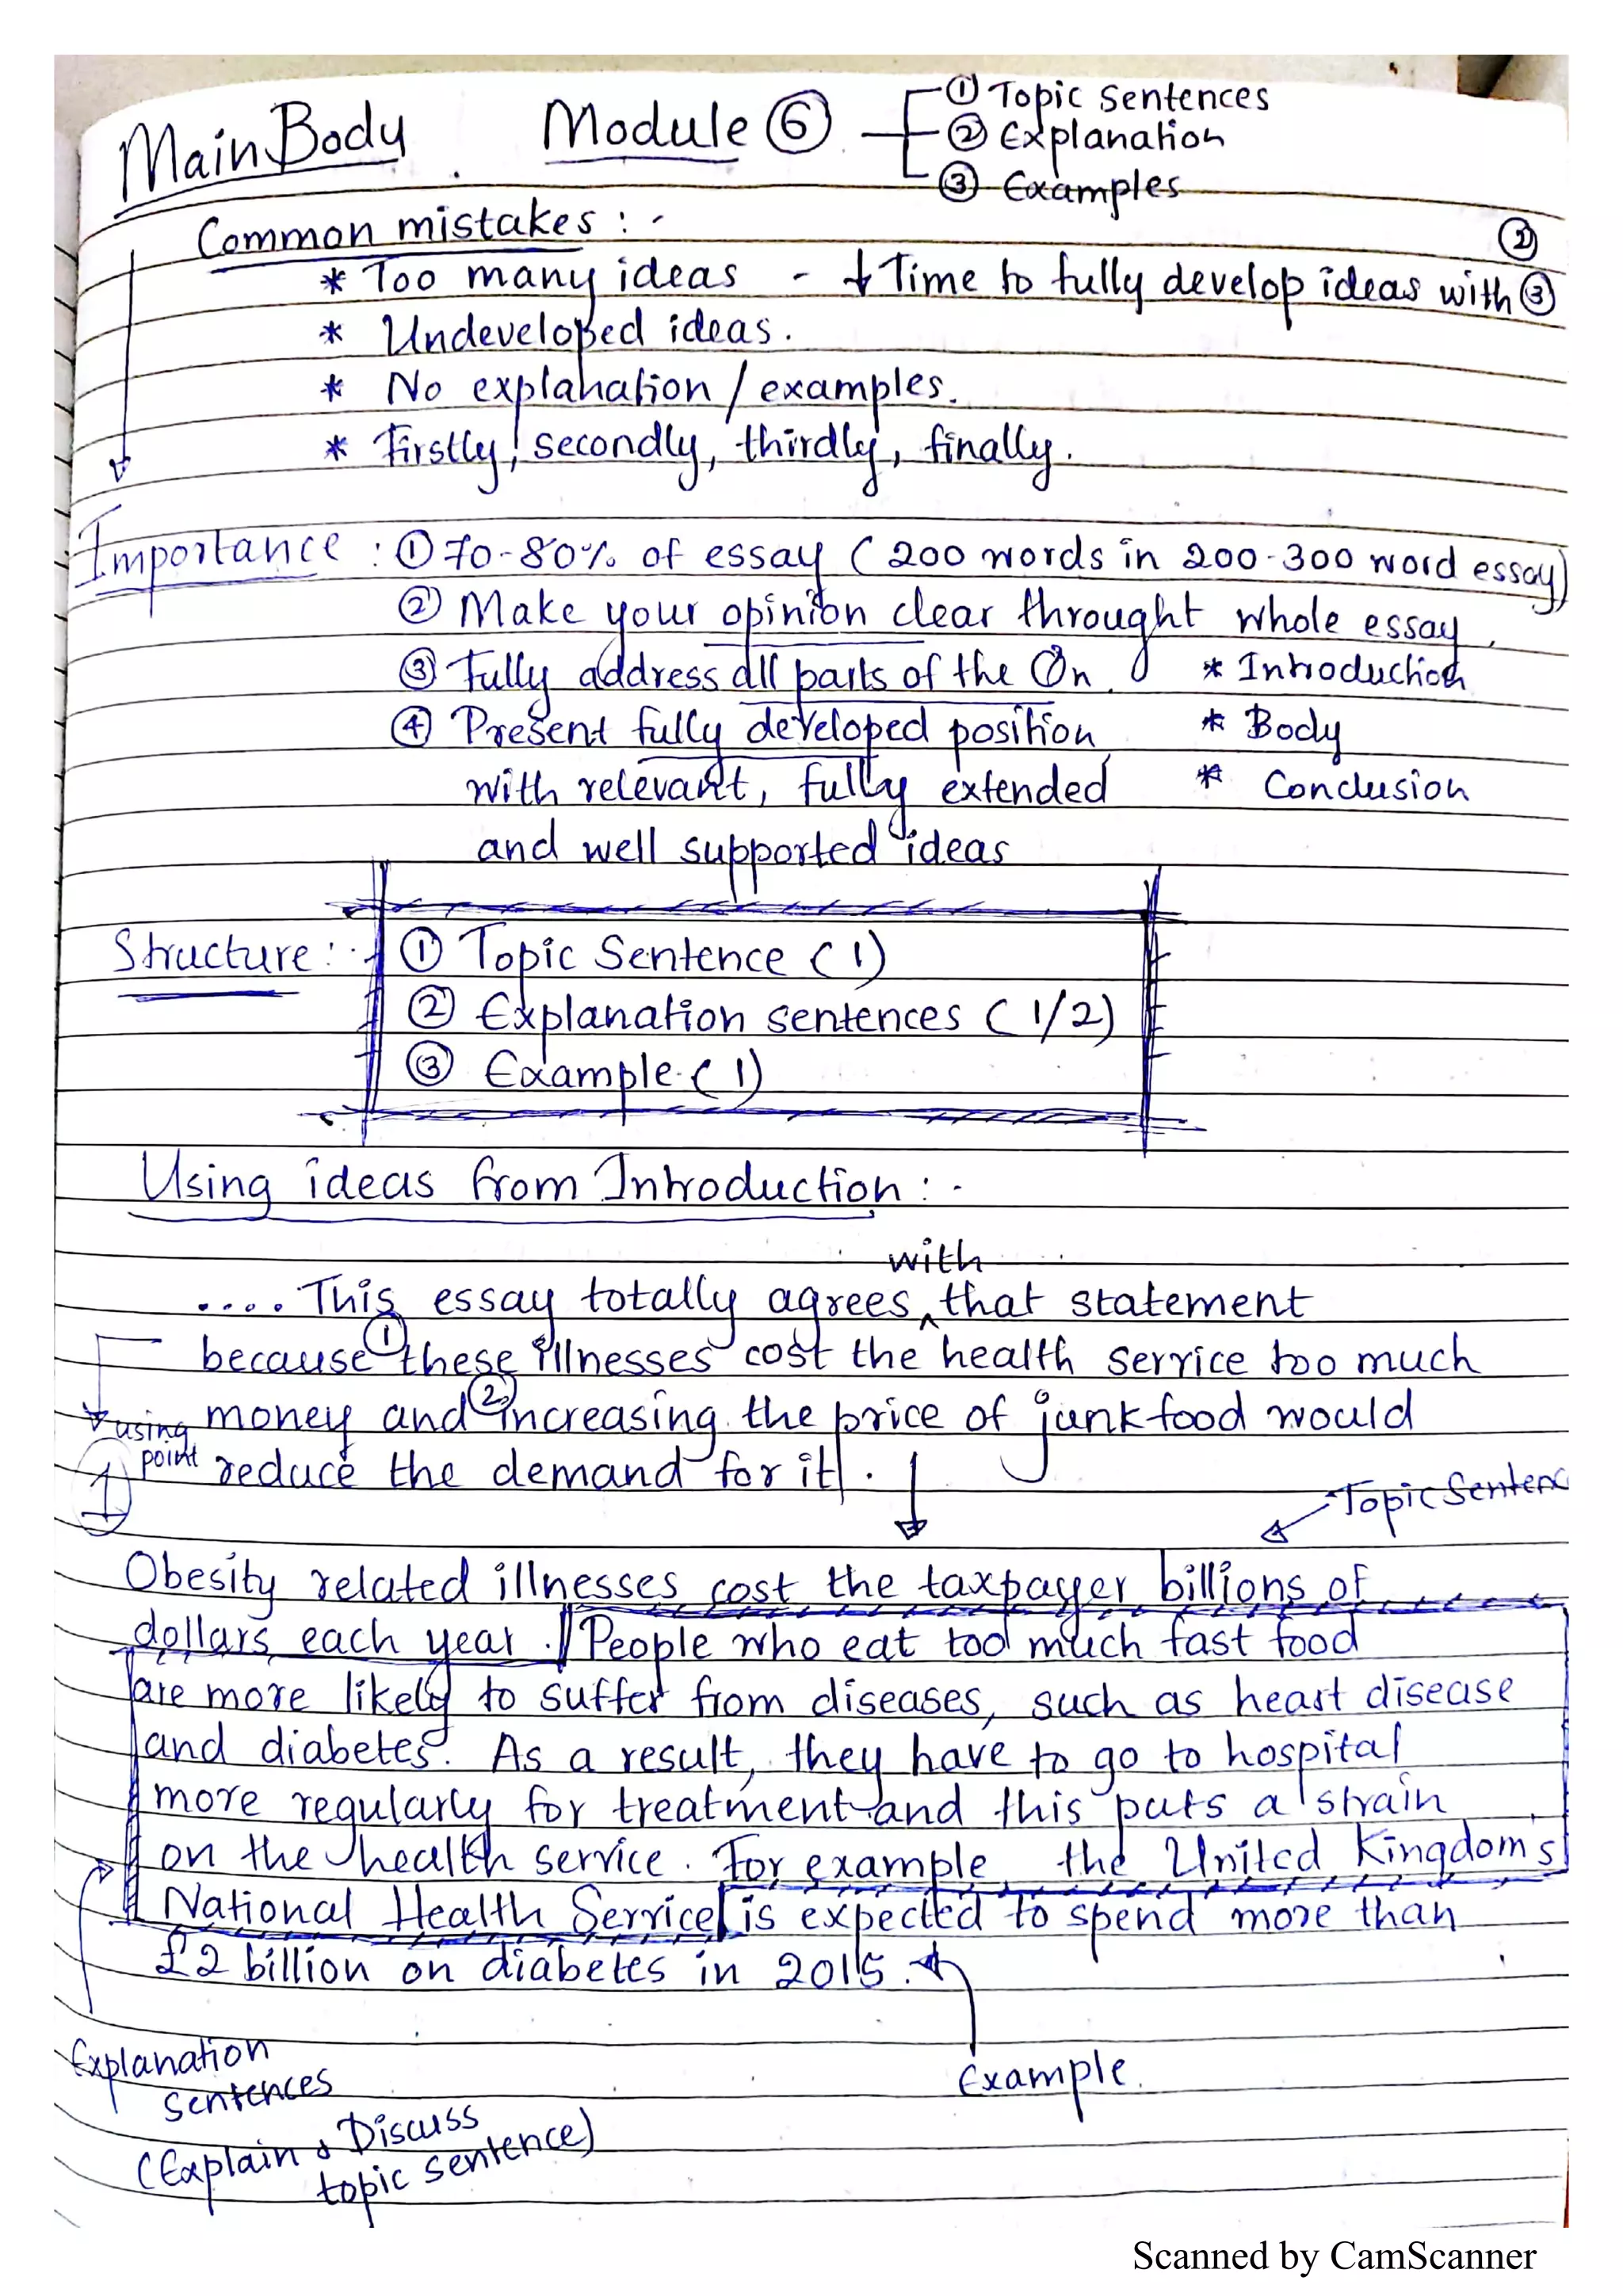 Main Body Module ⑥ ① Topic Sentences
② Explanation
③ Examples
Common mistakes : -
②
* Too many ideas - ↓ Time to fully develop ideas with ③
* Undeveloped ideas.
* No explanation / examples.
* Firstly, secondly, thirdly, finally.
Importance : ① 70-80% of essay ( 200 words in 200-300 word essay)
② Make your opinion clear throught whole essay,
③ Fully address all parts of the Qn. * Introduction
④ Present fully developed position, * Body
with relevant, fully extended * Conclusion
and well supported ideas
Structure: - ① Topic Sentence (1)
② Explanation sentences (1/2)
③ Example (1)
Using ideas from Introduction : -
with
.... This essay totally agrees ^ that statement
because ① these illnesses cost the health service too much
money and ② increasing the price of junk food would
using point 1
reduce the demand for it .
Topic Sentenc
Obesity related illnesses cost the taxpayer billions of
dollars each year . // People who eat too much fast food
are more likely to suffer from diseases, such as heart disease
and diabetes. As a result, they have to go to hospital
more regularly for treatment and this puts a strain
on the health service . For example the United Kingdom's
National Health Service is expected to spend more than
£2 billion on diabetes in 2015 .
Explanation
sentences
Example.
(Explain & Discuss
topic sentence)
Scanned by CamScanner